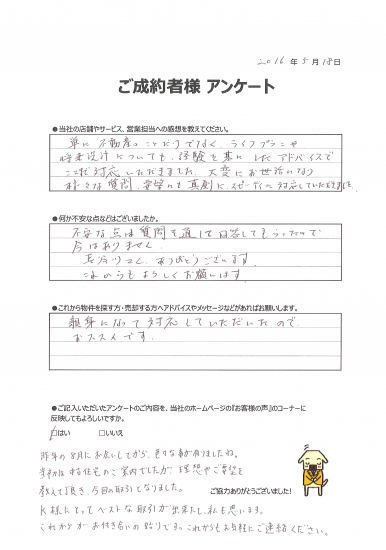 2016年5月18日
ご成約者様 アンケート
●当社の店舗やサービス、営業担当への感想を教えてください。
単に不動産のことだけでなく、ライフプランや
将来設計についても、経験を基にしたアドバイスで
ご対応いただきました。大変にお世話になり
様々な質問、要望にも真剣にスピーディに対応していただきました。
●何か不安な点などはございましたか。
不安な点は質問を通して回答してもらったので
今はありません。
ありがとうございます。
これからもよろしくお願いします。
●これから物件を探す方・売却する方へアドバイスやメッセージなどがあればお願いします。
親身になって対応していただいたので、
おススメです。
●ご記入いただいたアンケートのご内容を、当社のホームページの『お客様の声』のコーナーに
反映してもよろしいですか。
□はい □いいえ
昨年の8月にお会いしてから、色々な事が有りましたね。
当初は住宅のご案内でしたが、理想やご希望を
教えて頂き、今回の取引となりました。
ご協力ありがとうございました!
K様にとってベストな取引が出来たと、私も思います。
これからがお付き合いの始りです。これからもお気軽にご連絡ください。